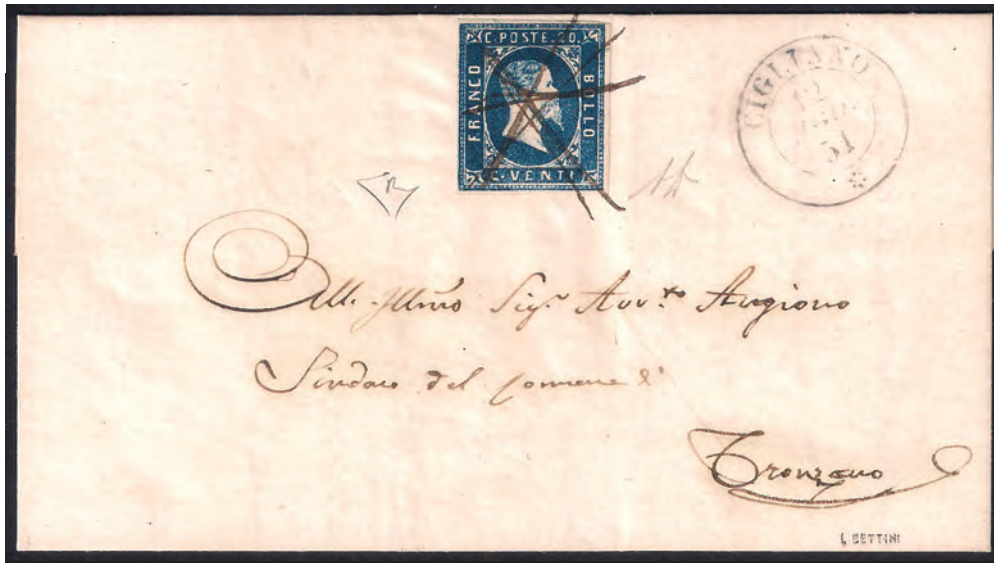 C. POSTE. 20.
FRANCO
BOLLO
C. VENTI
CIGLIANO
12
51
All. Illmo Sig. Avv.to Angiono
Sindaco del Comune di
Tronzano
L BETTINI